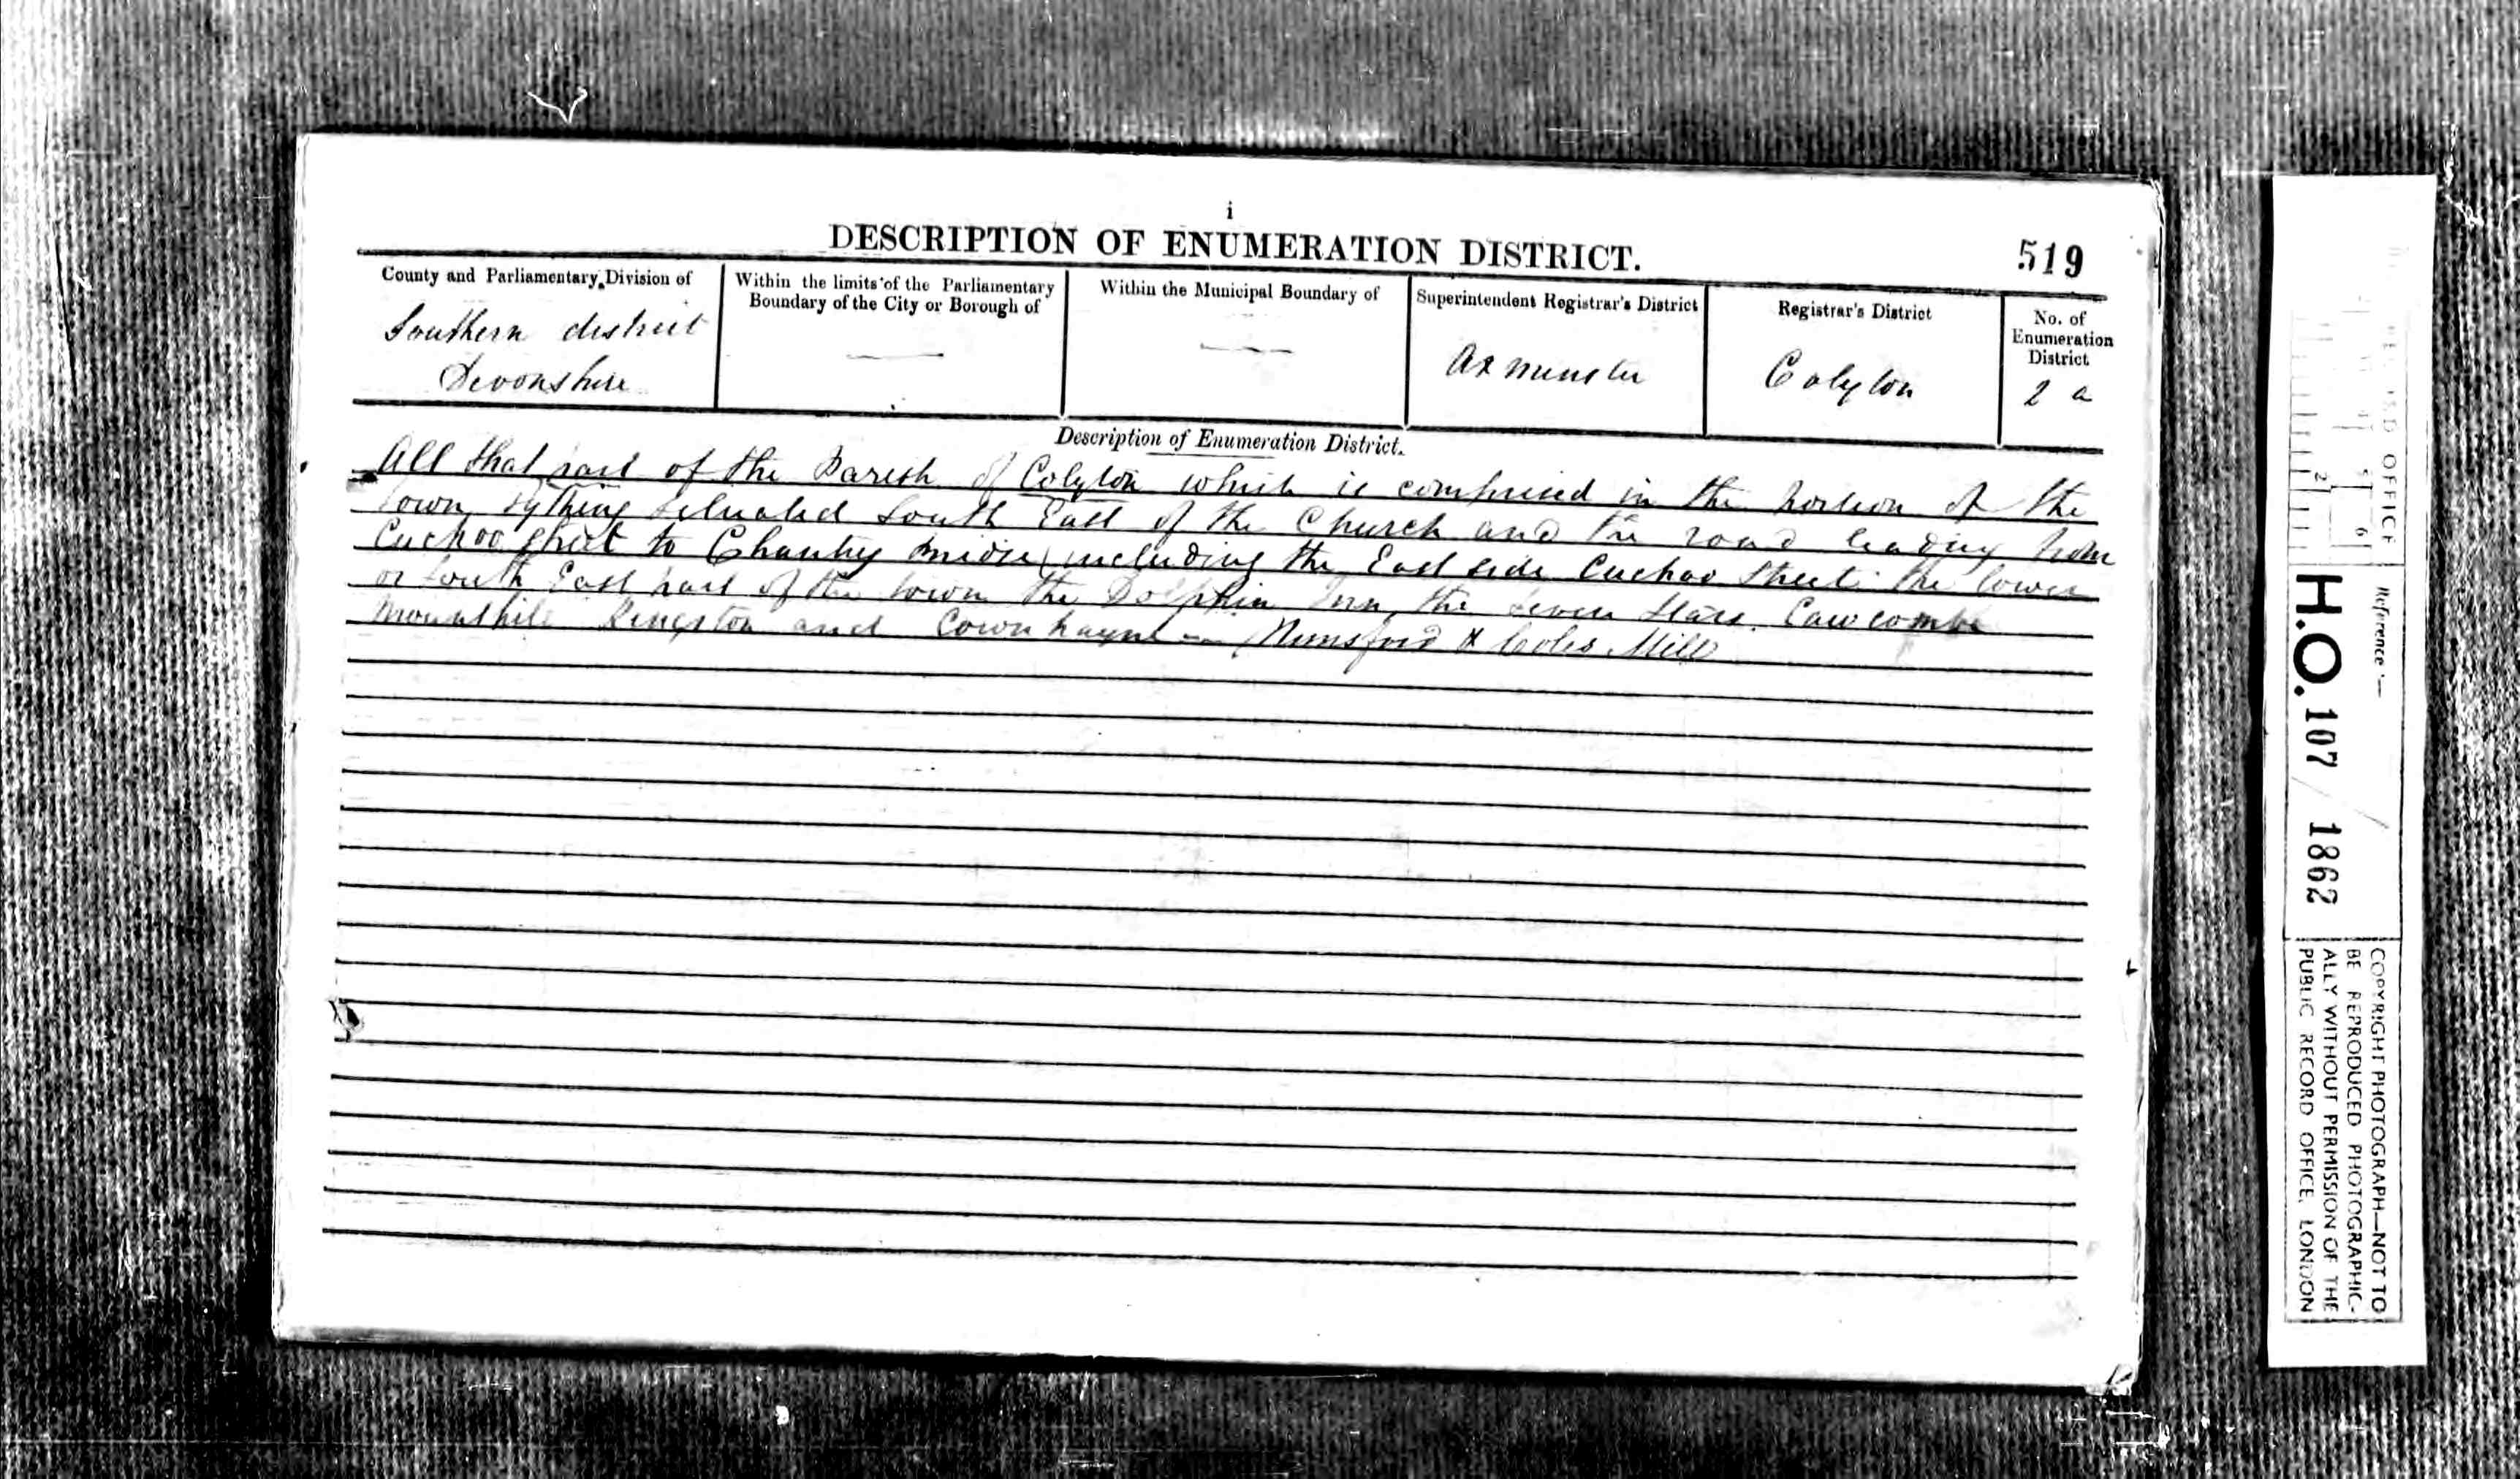 i
DESCRIPTION OF ENUMERATION DISTRICT.
519
County and Parliamentary Division of
Southern district
Devonshire
Within the limits of the Parliamentary
Boundary of the City or Borough of
—
Within the Municipal Boundary of
—
Superintendent Registrar's District
Axminster
Registrar's District
Colyton
No. of
Enumeration
District
2 a
Description of Enumeration District.
All that part of the Parish of Colyton which is comprised in the portion of the
town tything situated South East of the Church and the road leading from
Cuckoo Street to Chantry including the East side Cuckoo Street the lower
or South East part of the town the Dolphin Inn, the Seven Stars. Cawcombe
Mounthill Kingston and Cownhayne Nunsford & Coles Mill
OFFICE
Reference :—
H.O. 107 / 1862
COPYRIGHT PHOTOGRAPH—NOT TO
BE REPRODUCED PHOTOGRAPHIC-
ALLY WITHOUT PERMISSION OF THE
PUBLIC RECORD OFFICE, LONDON